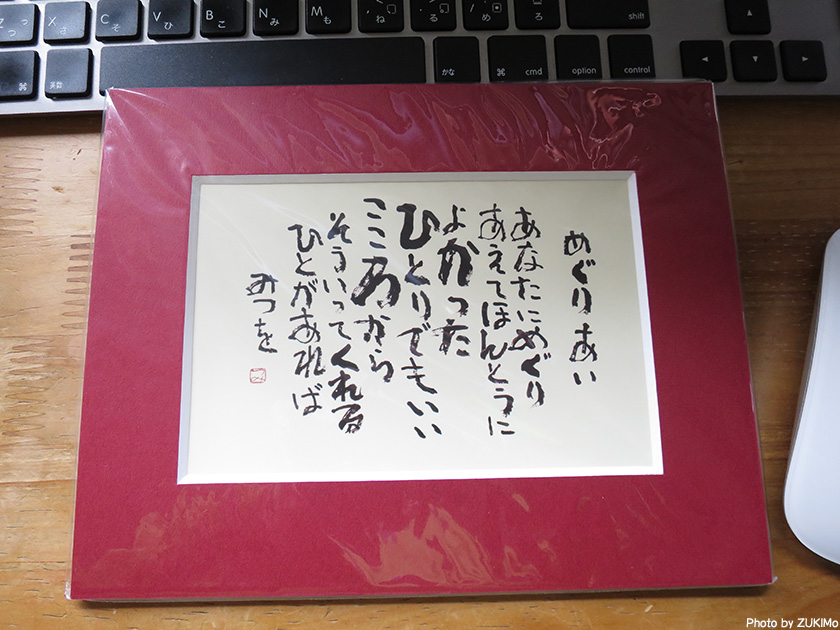 めぐりあい
あなたにめぐり
あえてほんとうに
よかった
ひとりでもいい
こころから
そういってくれる
ひとがあれば
みつを
Z
つ
X
さ
C
そ
V
ひ
B
こ
N
み
M
も
ね
る
め
ろ
shift
英数
かな
⌘ cmd
option
control
Photo by ZUKIMo